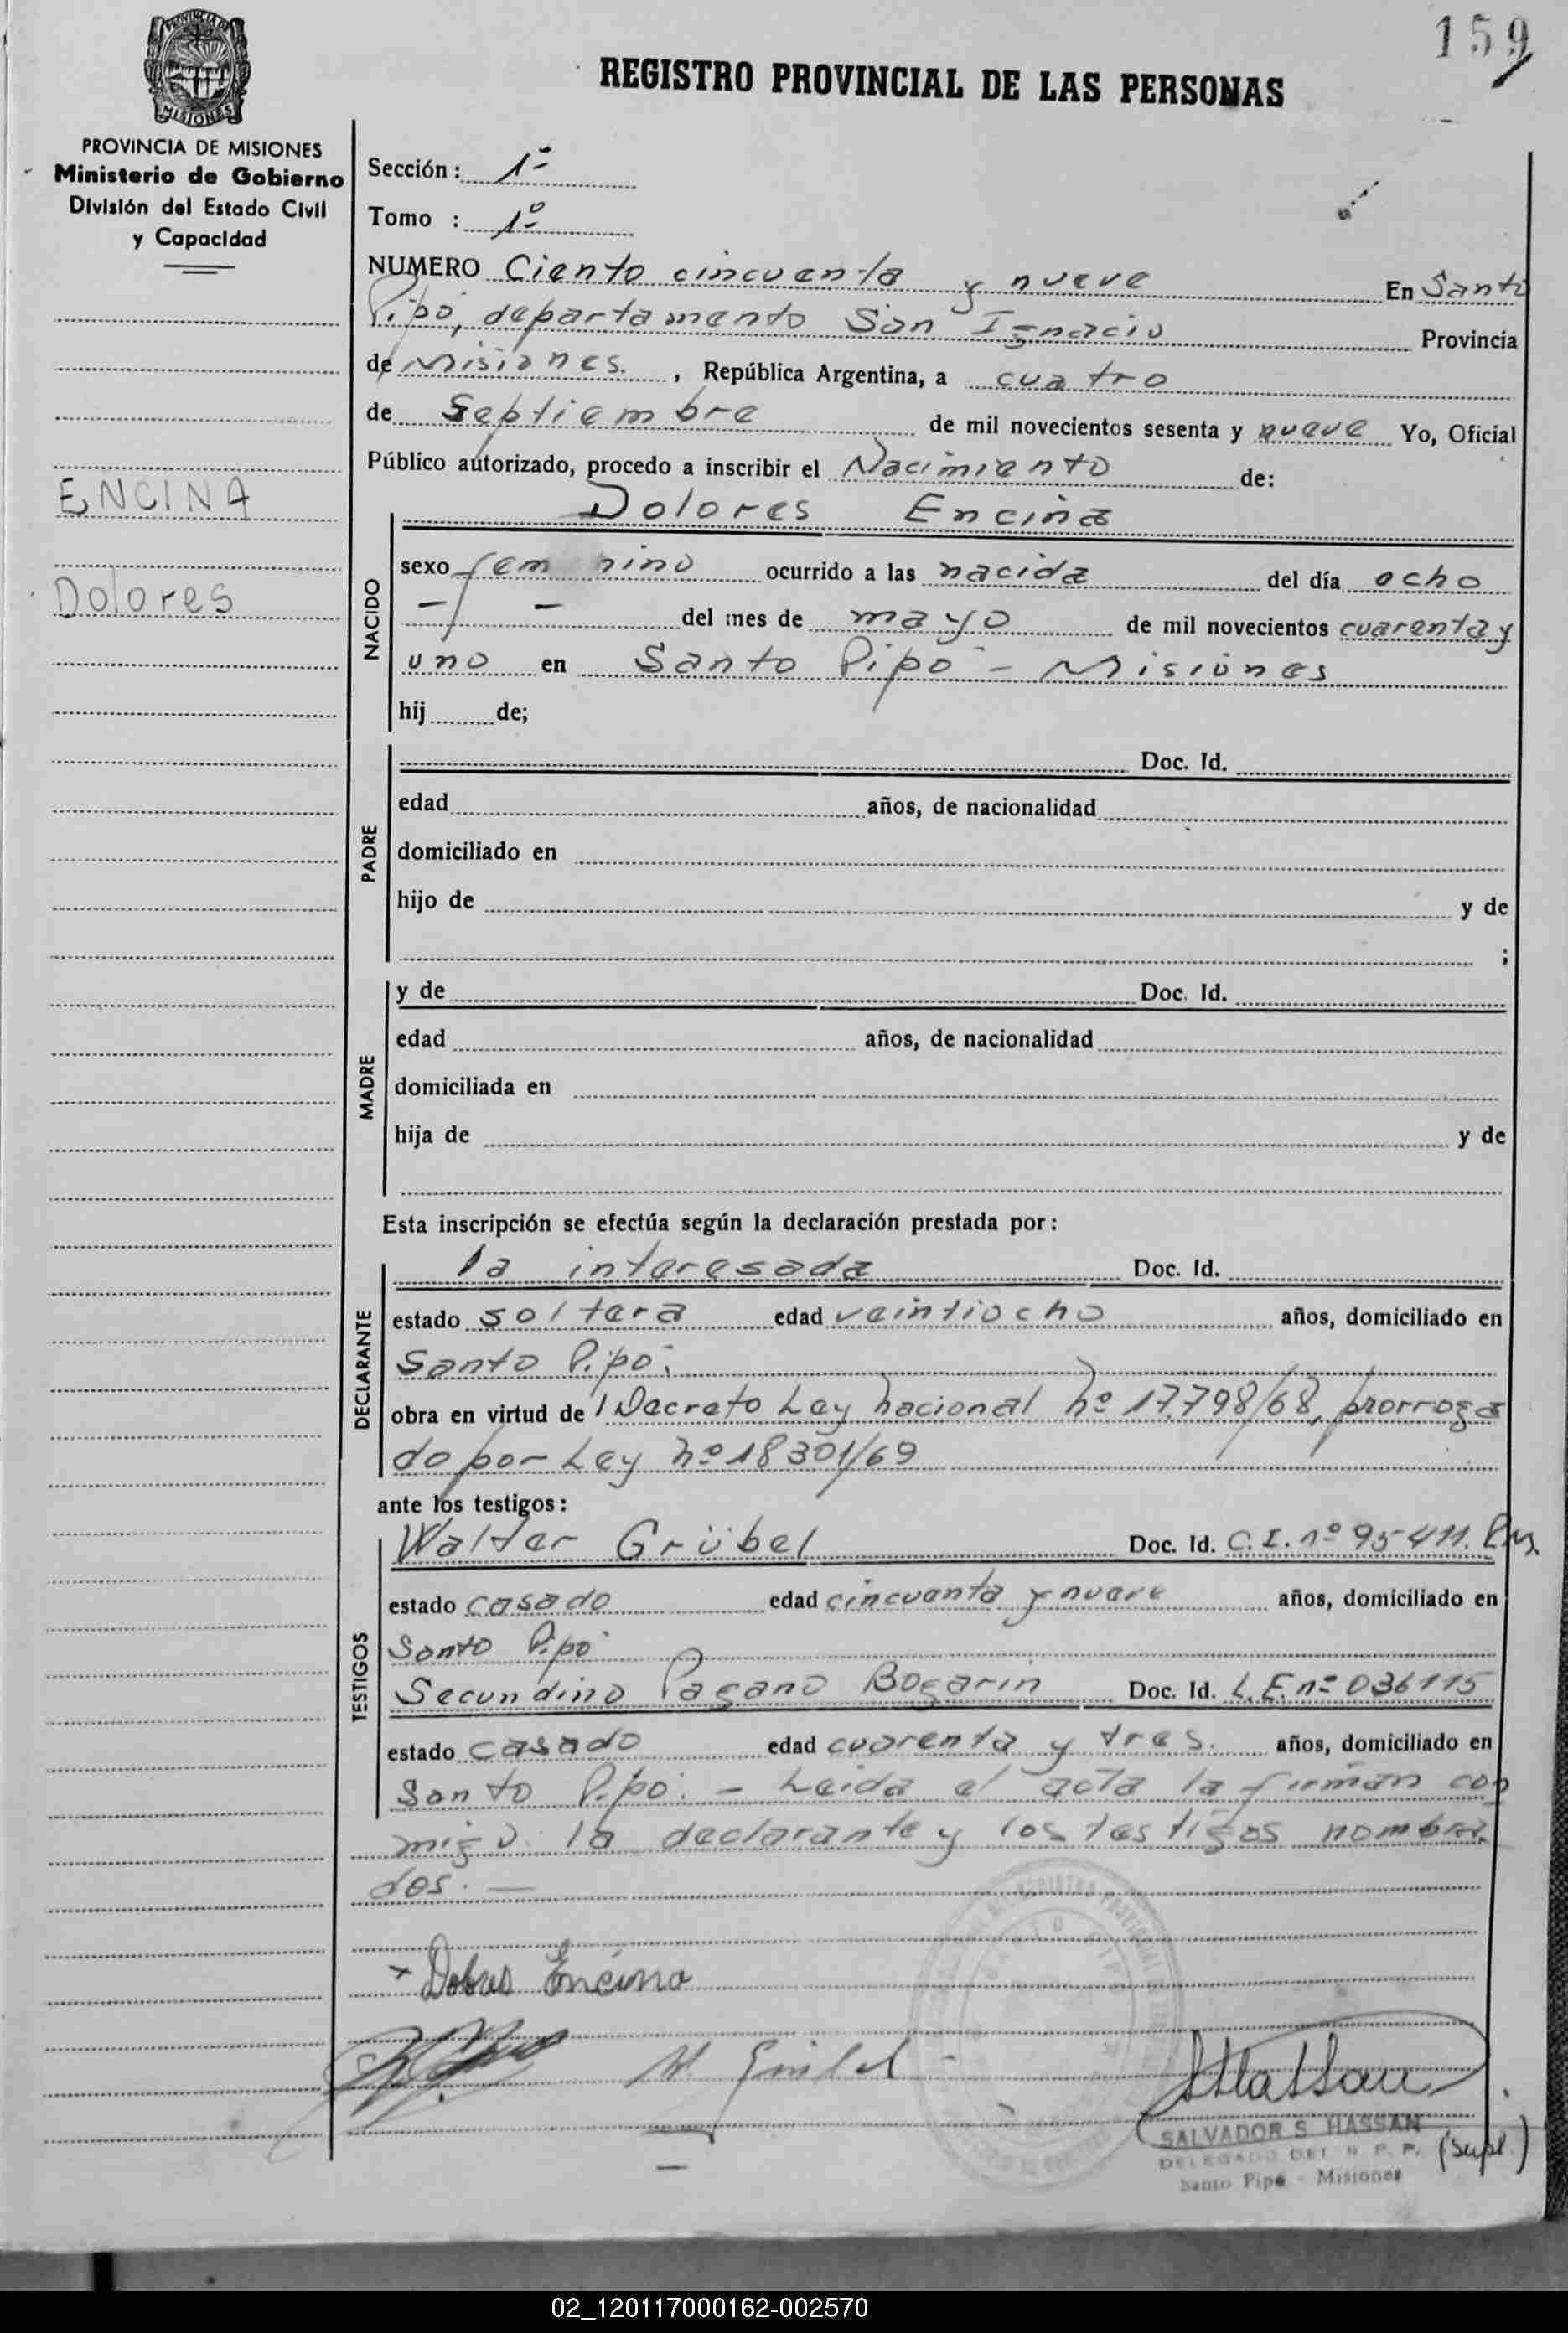 159
REGISTRO PROVINCIAL DE LAS PERSONAS
PROVINCIA DE MISIONES
Ministerio de Gobierno
División del Estado Civil
y Capacidad
ENCINA
Dolores
Sección: 1ª
Tomo : 1º
NUMERO Ciento cincuenta y nueve En Santo
Pipó, departamento San Ignacio Provincia
de Misiones. , República Argentina, a cuatro
de Septiembre de mil novecientos sesenta y nueve Yo, Oficial
Público autorizado, procedo a inscribir el Nacimiento de:
Dolores Encina
NACIDO
sexo femenino ocurrido a las nacida del día ocho
— — del mes de mayo de mil novecientos cuarenta y
uno en Santo Pipó - Misiones
hij de;
PADRE
Doc. Id.
edad años, de nacionalidad
domiciliado en
hijo de y de
;
MADRE
y de Doc. Id.
edad años, de nacionalidad
domiciliada en
hija de y de
Esta inscripción se efectúa según la declaración prestada por:
DECLARANTE
la interesada Doc. Id.
estado soltera edad veintiocho años, domiciliado en
Santo Pipó.
obra en virtud de l Decreto Ley Nacional nº 17.798/68, prorroga
do por Ley nº 18301/69
ante los testigos:
TESTIGOS
Walter Grübel Doc. Id. C.I. nº 95411.
estado casado edad cincuenta y nueve años, domiciliado en
Santo Pipó
Secundino Pagano Bogarin Doc. Id. L.E. nº 036115
estado casado edad cuarenta y tres. años, domiciliado en
Santo Pipó. - Leida el acta la firman con
migo la declarante y los testigos nombra
dos. —
x Dolores Encina
SALVADOR S. HASSAN
DELEGADO DEL R. P. P. (Supl.)
Santo Pipó - Misiones
02_120117000162-002570